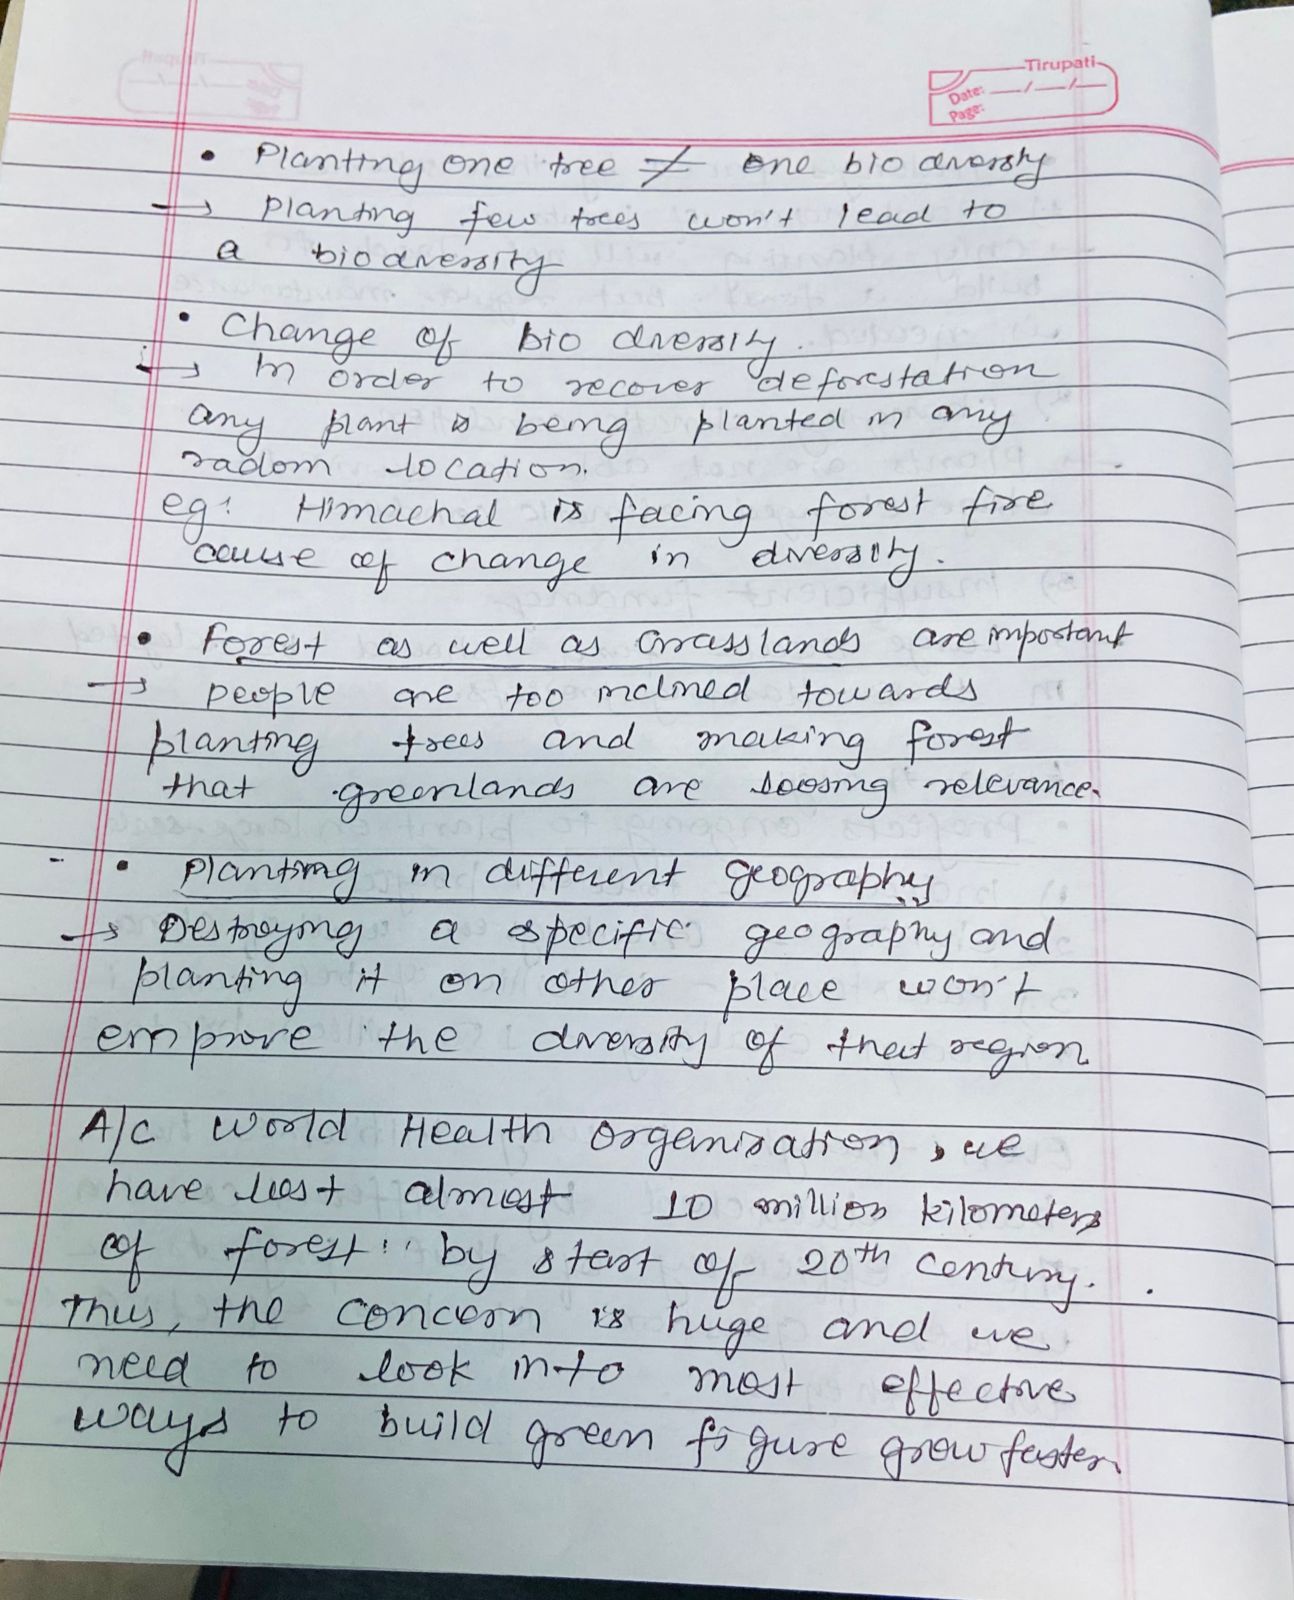 Tirupati
Date: __/__/__
Page:
• Planting one tree ≠ one bio diversity
→ Planting few trees won't lead to
a biodiversity
• Change of bio diversity.
→ In order to recover deforestation
any plant is being planted in any
radom location.
eg: Himachal is facing forest fire
cause of change in diversity.
• Forest as well as Grasslands are important
→ people are too inclined towards
planting trees and making forest
that greenlands are loosing relevance.
• Planting in different geography
→ Destroying a specific geography and
planting it on other place won't
emprove the diversity of that region
A/c World Health Organisation, we
have lost almost 10 million kilometers
of forest by start of 20th century.
Thus, the concern is huge and we
need to look into most effective
ways to build green figure grow faster.